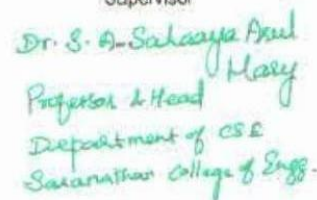 Supervisor
Dr. S. A. Sahaaya Arul
Mary
Professor & Head
Department of CSE
Saranathan College of Engg.